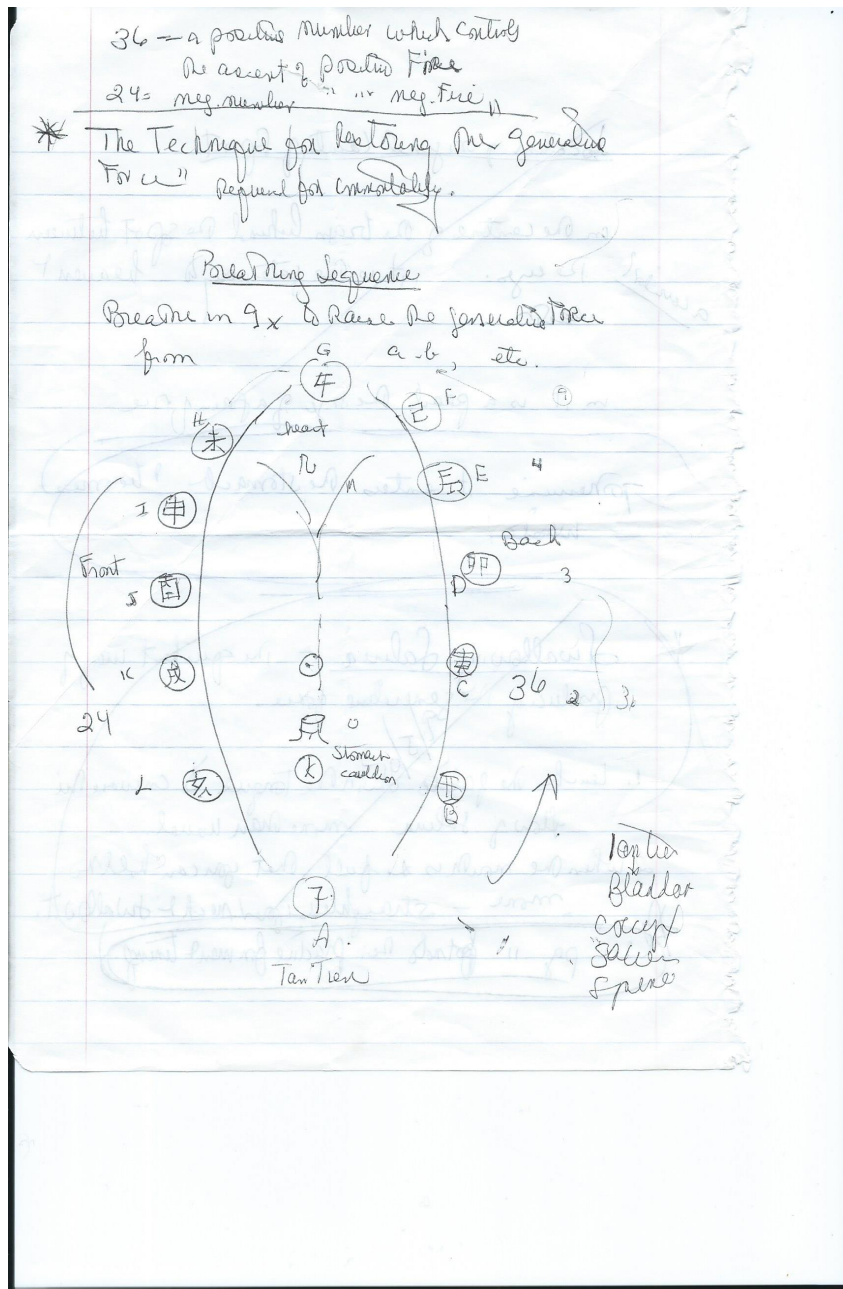 36 = a positive number which controls
the ascent of positive Fire
24 = neg. number " " " neg. Fire "
* The Technique for Restoring the generative
Force"
Required for immortality.
Breathing Sequence
Breathe in 9x to Raise the generative Force
from a. b, etc.
G
午
F
己
9
H
未
heart
辰
E
4
I
申
Back
Front
J
D
卯
3
K
戌
C
36
2
24
Stomach
cauldron
火
L
亥
B
A.
Tan Tien
Tan Tien
Bladder
Coccyx
Sacrum
Spine